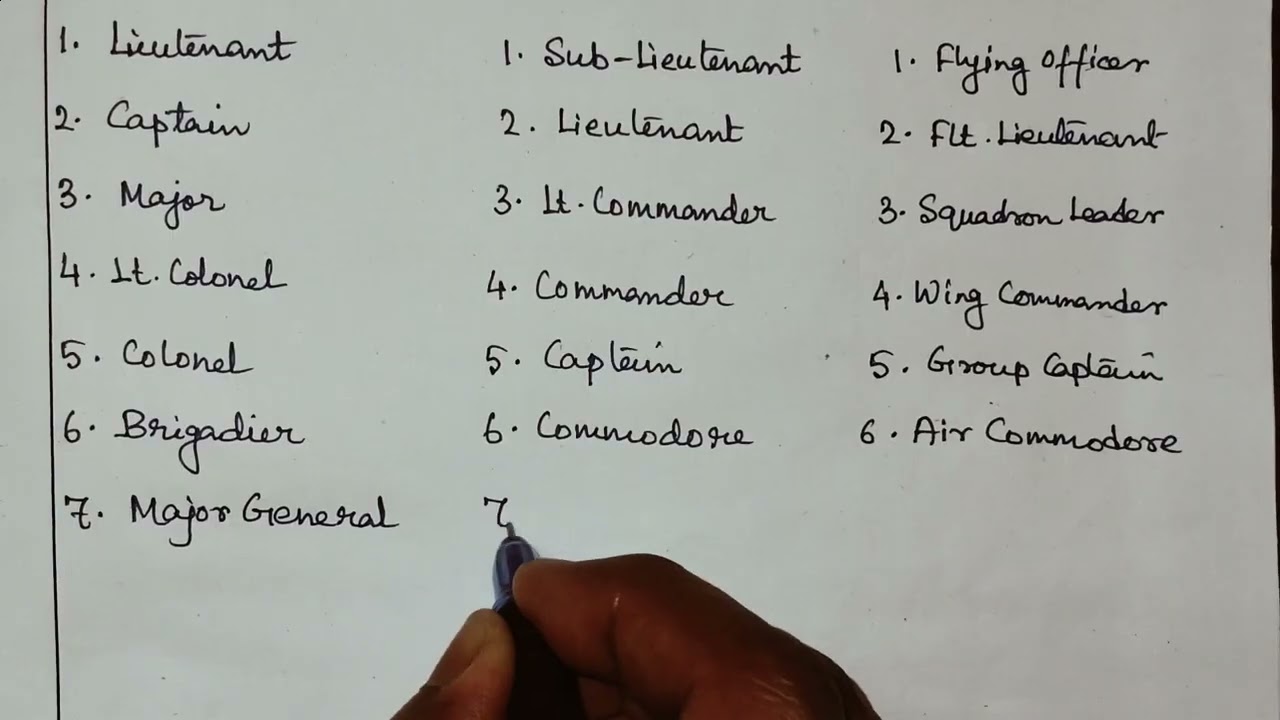 1. Lieutenant 1. Sub-Lieutenant 1. Flying Officer
2. Captain 2. Lieutenant 2. Flt. Lieutenant
3. Major 3. Lt. Commander 3. Squadron Leader
4. Lt. Colonel 4. Commander 4. Wing Commander
5. Colonel 5. Captain 5. Group Captain
6. Brigadier 6. Commodore 6. Air Commodore
7. Major General 7